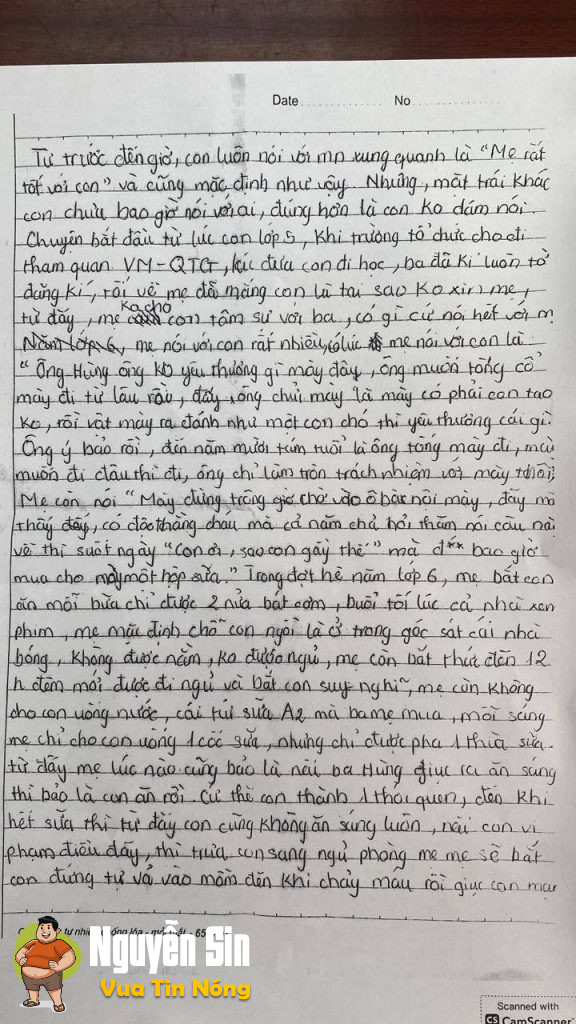 Date............... No...............
Từ trước đến giờ, con luôn nói với mn xung quanh là "Mẹ rất
tốt với con" và cũng mặc định như vậy. Nhưng, mặt trái khác
con chưa bao giờ nói với ai, đúng hơn là con ko dám nói.
Chuyện bắt đầu từ lúc con lớp 5, khi trường tổ chức cho đi
tham quan VM-QTG, lúc đưa con đi học, ba đã kí luôn tờ
đăng kí, rồi về mẹ đã mắng con là tại sao ko xin mẹ,
từ đấy, mẹ ko cho con tâm sự với ba, có gì cứ nói hết với m
Năm lớp 6, mẹ nói với con rất nhiều, có lúc mẹ nói với con là
"Ông Hùng ông ko yêu thương gì mày đâu, ông muốn tống cổ
mày đi từ lâu rồi, đấy, ông chửi mày là mày có phải con tao
ko, rồi vật mày ra đánh như một con chó thì yêu thương cái gì.
Ông ý bảo rồi, đến năm mười tám tuổi là ông tống mày đi, mày
muốn đi đâu thì đi, ông chỉ làm tròn trách nhiệm với mày thôi"
Mẹ còn nói "Mày đừng trông giờ chờ vào ô bà nội mày, đấy mà
thấy đấy, có đứa thằng cháu mà cả năm chả hỏi thăm nói câu nào
về thì suốt ngày "Con ơi, sao con gầy thế" mà đ** bao giờ
mua cho mày một hộp sữa." Trong đợt hè năm lớp 6, mẹ bắt con
ăn mỗi bữa chỉ được 2 nửa bát cơm, buổi tối lúc cả nhà xem
phim, mẹ mặc định chỗ con ngồi là ở trong góc sát cái nhà
bóng, không được nằm, ko được ngủ, mẹ còn bắt thức đến 12
h đêm mới được đi ngủ và bắt con suy nghĩ, mẹ còn không
cho con uống nước, cái túi sữa A2 mà ba mẹ mua, mỗi sáng
mẹ chỉ cho con uống 1 cốc sữa, nhưng chỉ được pha 1 thìa sữa.
từ đấy mẹ lúc nào cũng bảo là nếu ba Hùng giục ra ăn sáng
thì bảo là con ăn rồi. Cứ thế con thành 1 thói quen, đến khi
hết sữa thì từ đấy con cũng không ăn sáng luôn, nếu con vi
phạm điều đấy, thì trưa con sang ngủ phòng mẹ mẹ sẽ bắt
con đứng tự vả vào mồm đến khi chảy máu rồi giục con
Nguyễn Sin
Vua Tin Nóng
Scanned with
CS CamScanner